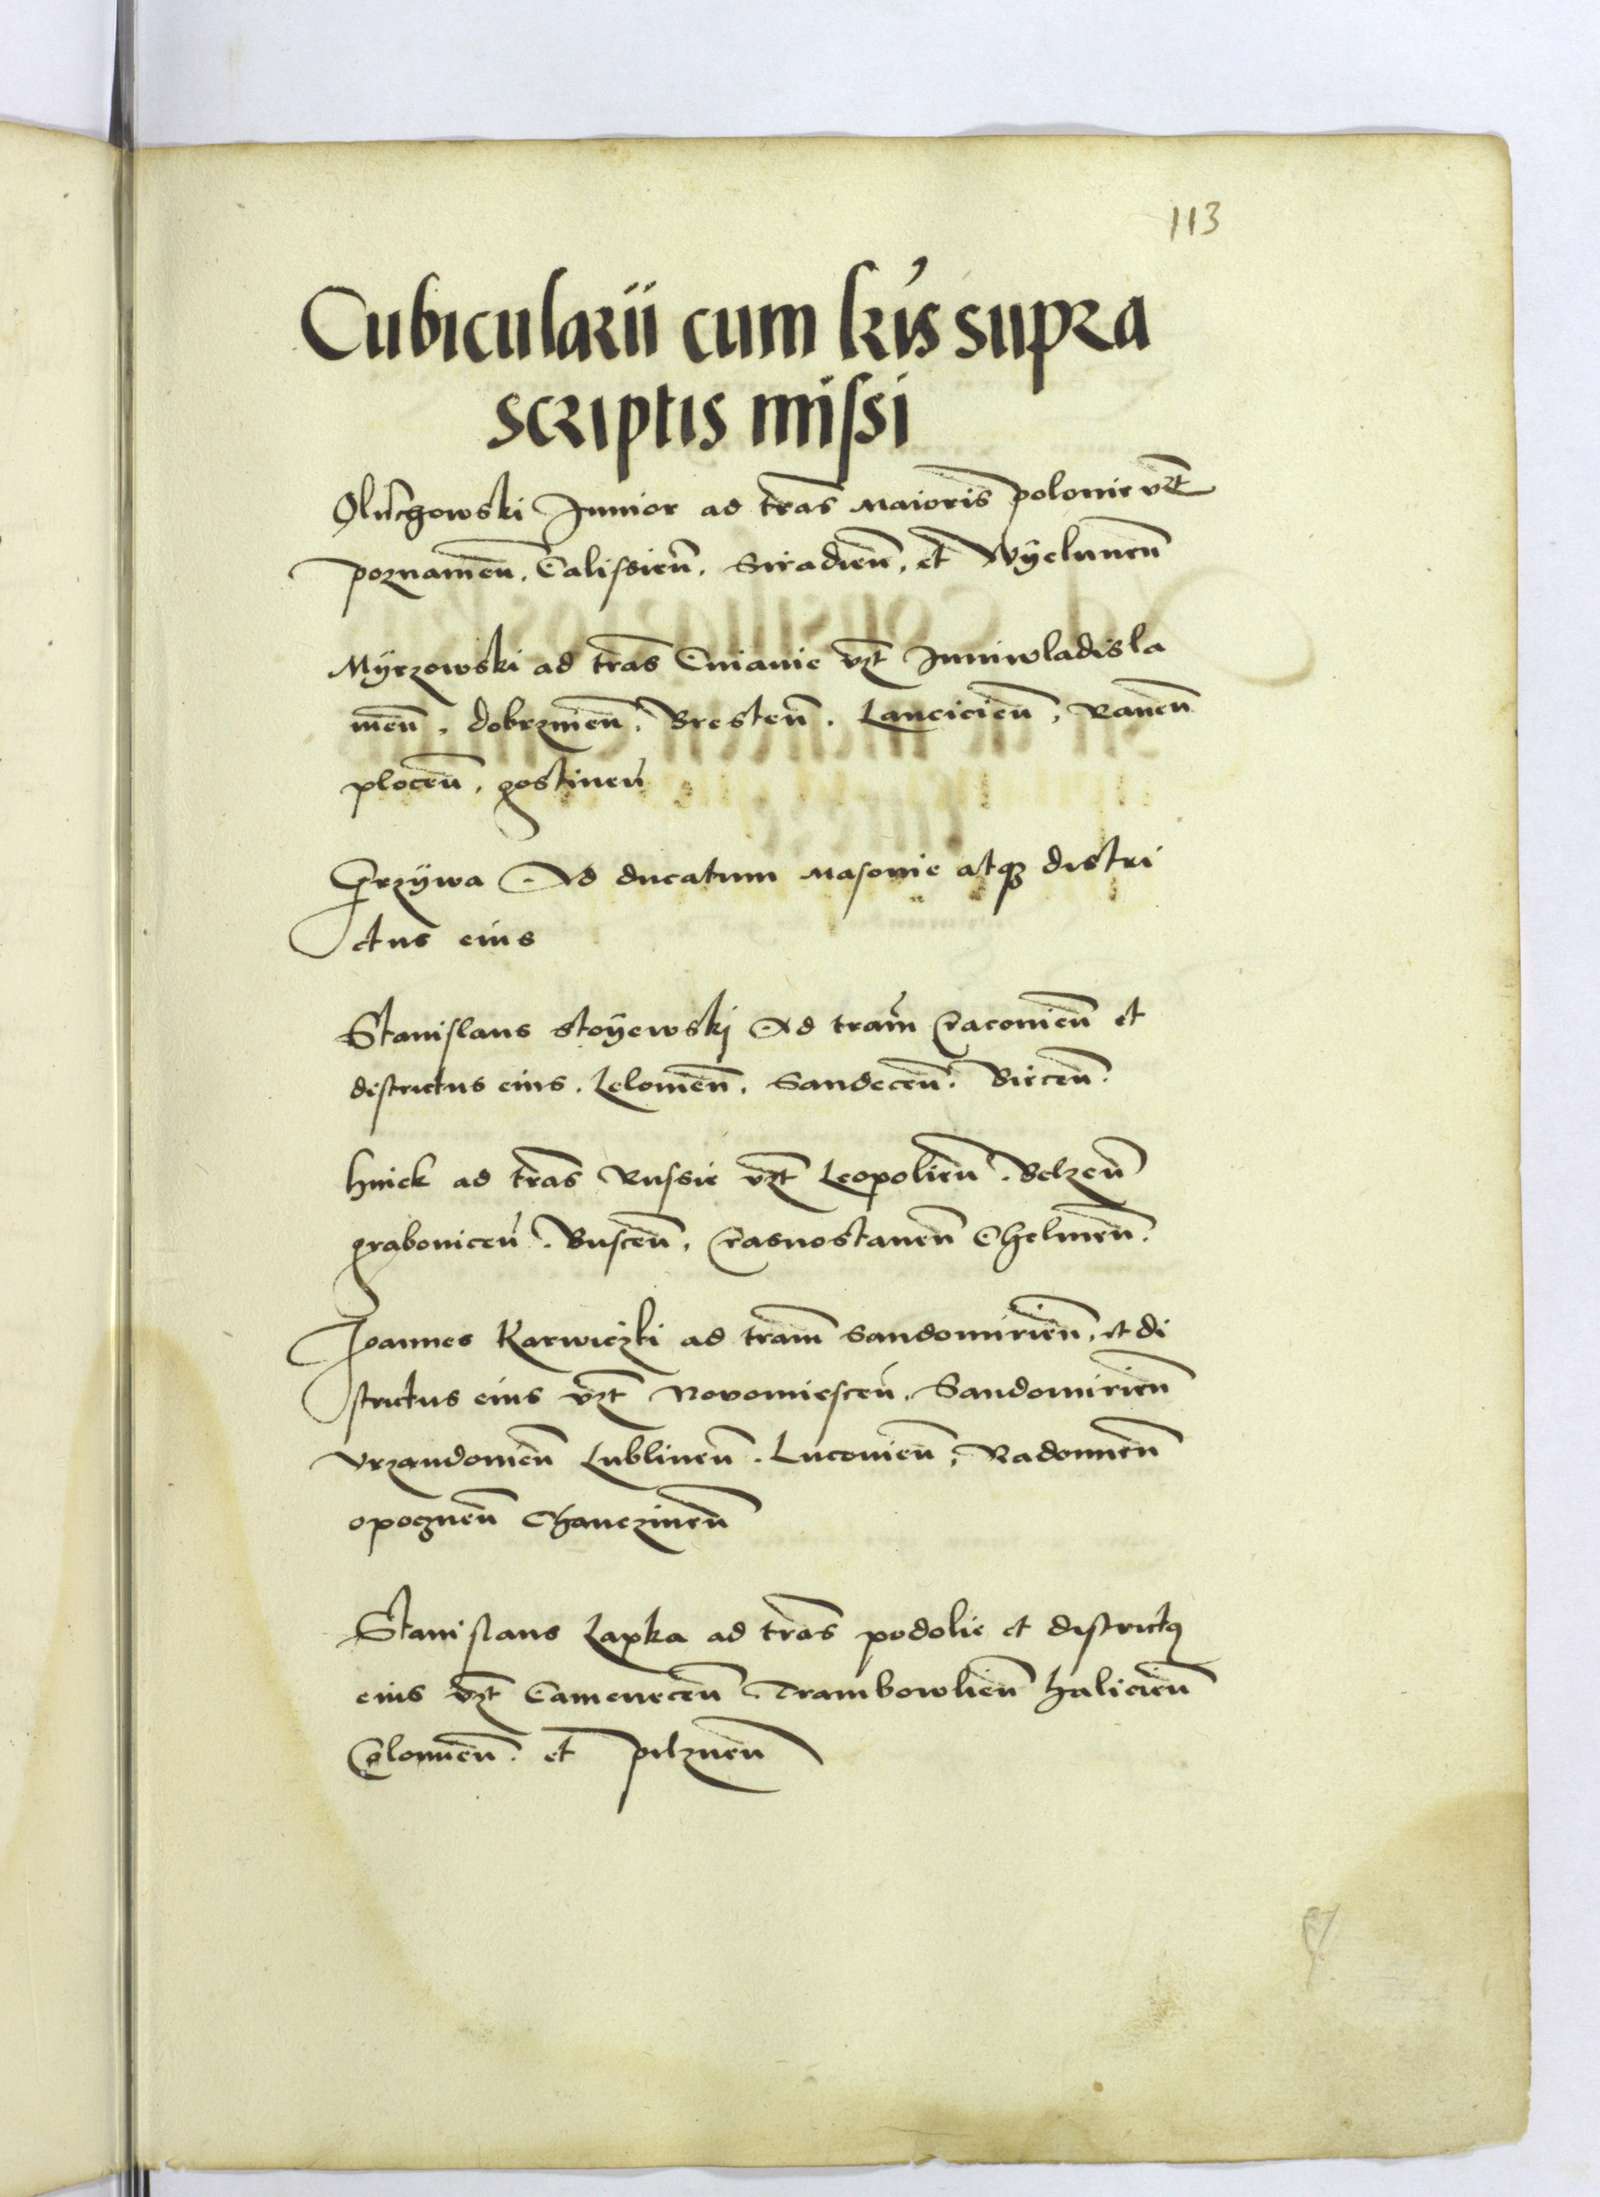 113
Cubicularii cum lr̃is supra
scriptis missi
Oluchowski Junior ad tr̃as Maioris polonie vz̃t
poznanien̄. Calissien̄. Siradien̄. et Wÿelunen̄
Mÿrzowski ad tr̃as Cuiauie vz̃t Juniwladisla
uien̄. dobrzinen̄. Bresten̄. Lancicien̄. Rauen̄
plocen̄. gostinen̄
Grzÿwa Ad ducatum Masouie atq3 distri
ctus eius
Stanislaus stoÿewskj Ad tr̃am Cracouien̄ et
districtus eius. Lelouien̄. Sandecen̄. Biecen̄.
hinek ad tr̃as Russie vz̃t Leopolien̄. Belzen̄
grabouicen̄. Buscen̄. Crasnostauen̄ Chelmen̄.
Joannes Karwiczki ad tr̃am Sandomirien̄. et di
strictus eius vz̃t Novomiescen̄. Sandomirien̄
Vrzandouien̄ Lublinen̄. Lucouien̄. Radomien̄
opocznen̄ Chanczinen̄
Stanislaus Lapka ad tr̃as podolie et districtꝰ
eius vz̃t Camenecen̄ Trambowlien̄ halicien̄
Colomien̄. et pilznen̄